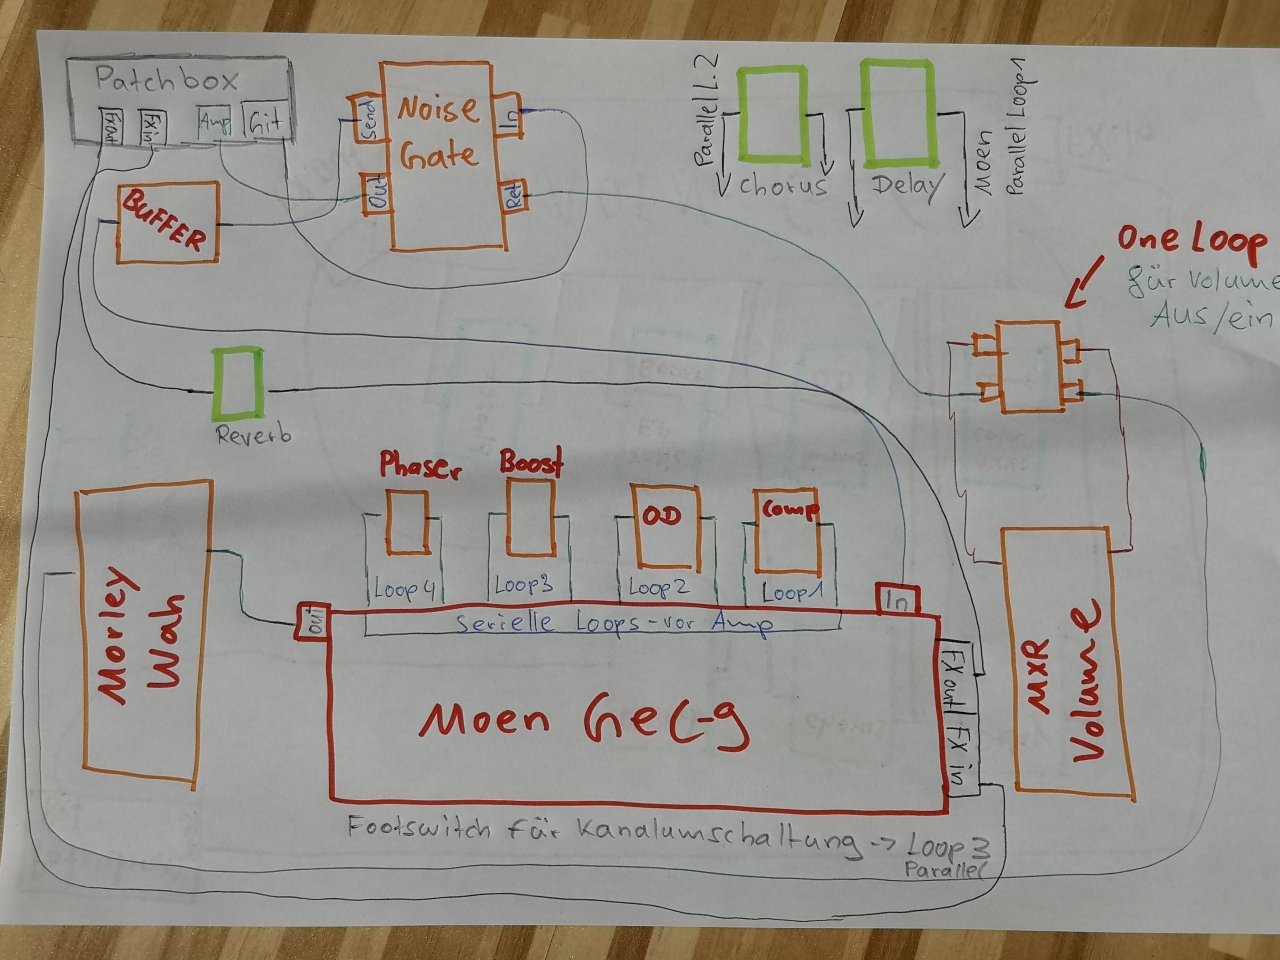 Patchbox
FX out
FX in
Amp
Git
Send
Noise
Gate
In
Out
Ret
BUFFER
Parallel L.2
Chorus
Delay
Moen
Parallel Loop1
One Loop
für Volume
Aus/ein
Reverb
Phaser
Boost
OD
Comp
Loop4
Loop3
Loop2
Loop1
In
Out
Serielle Loops-vor Amp
Morley
Wah
Moen GeC-9
FX out
FX in
MXR
Volume
Footswitch für Kanalumschaltung -> Loop3
Parallel